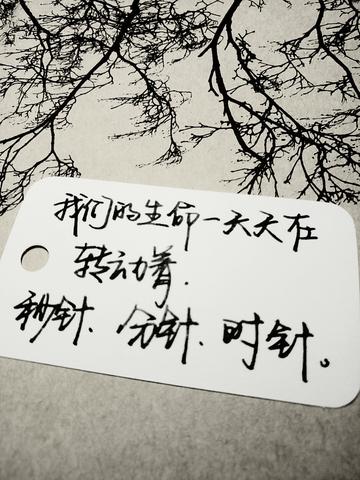 我们的生命一天天在
转动着.
秒针、分针、时针。